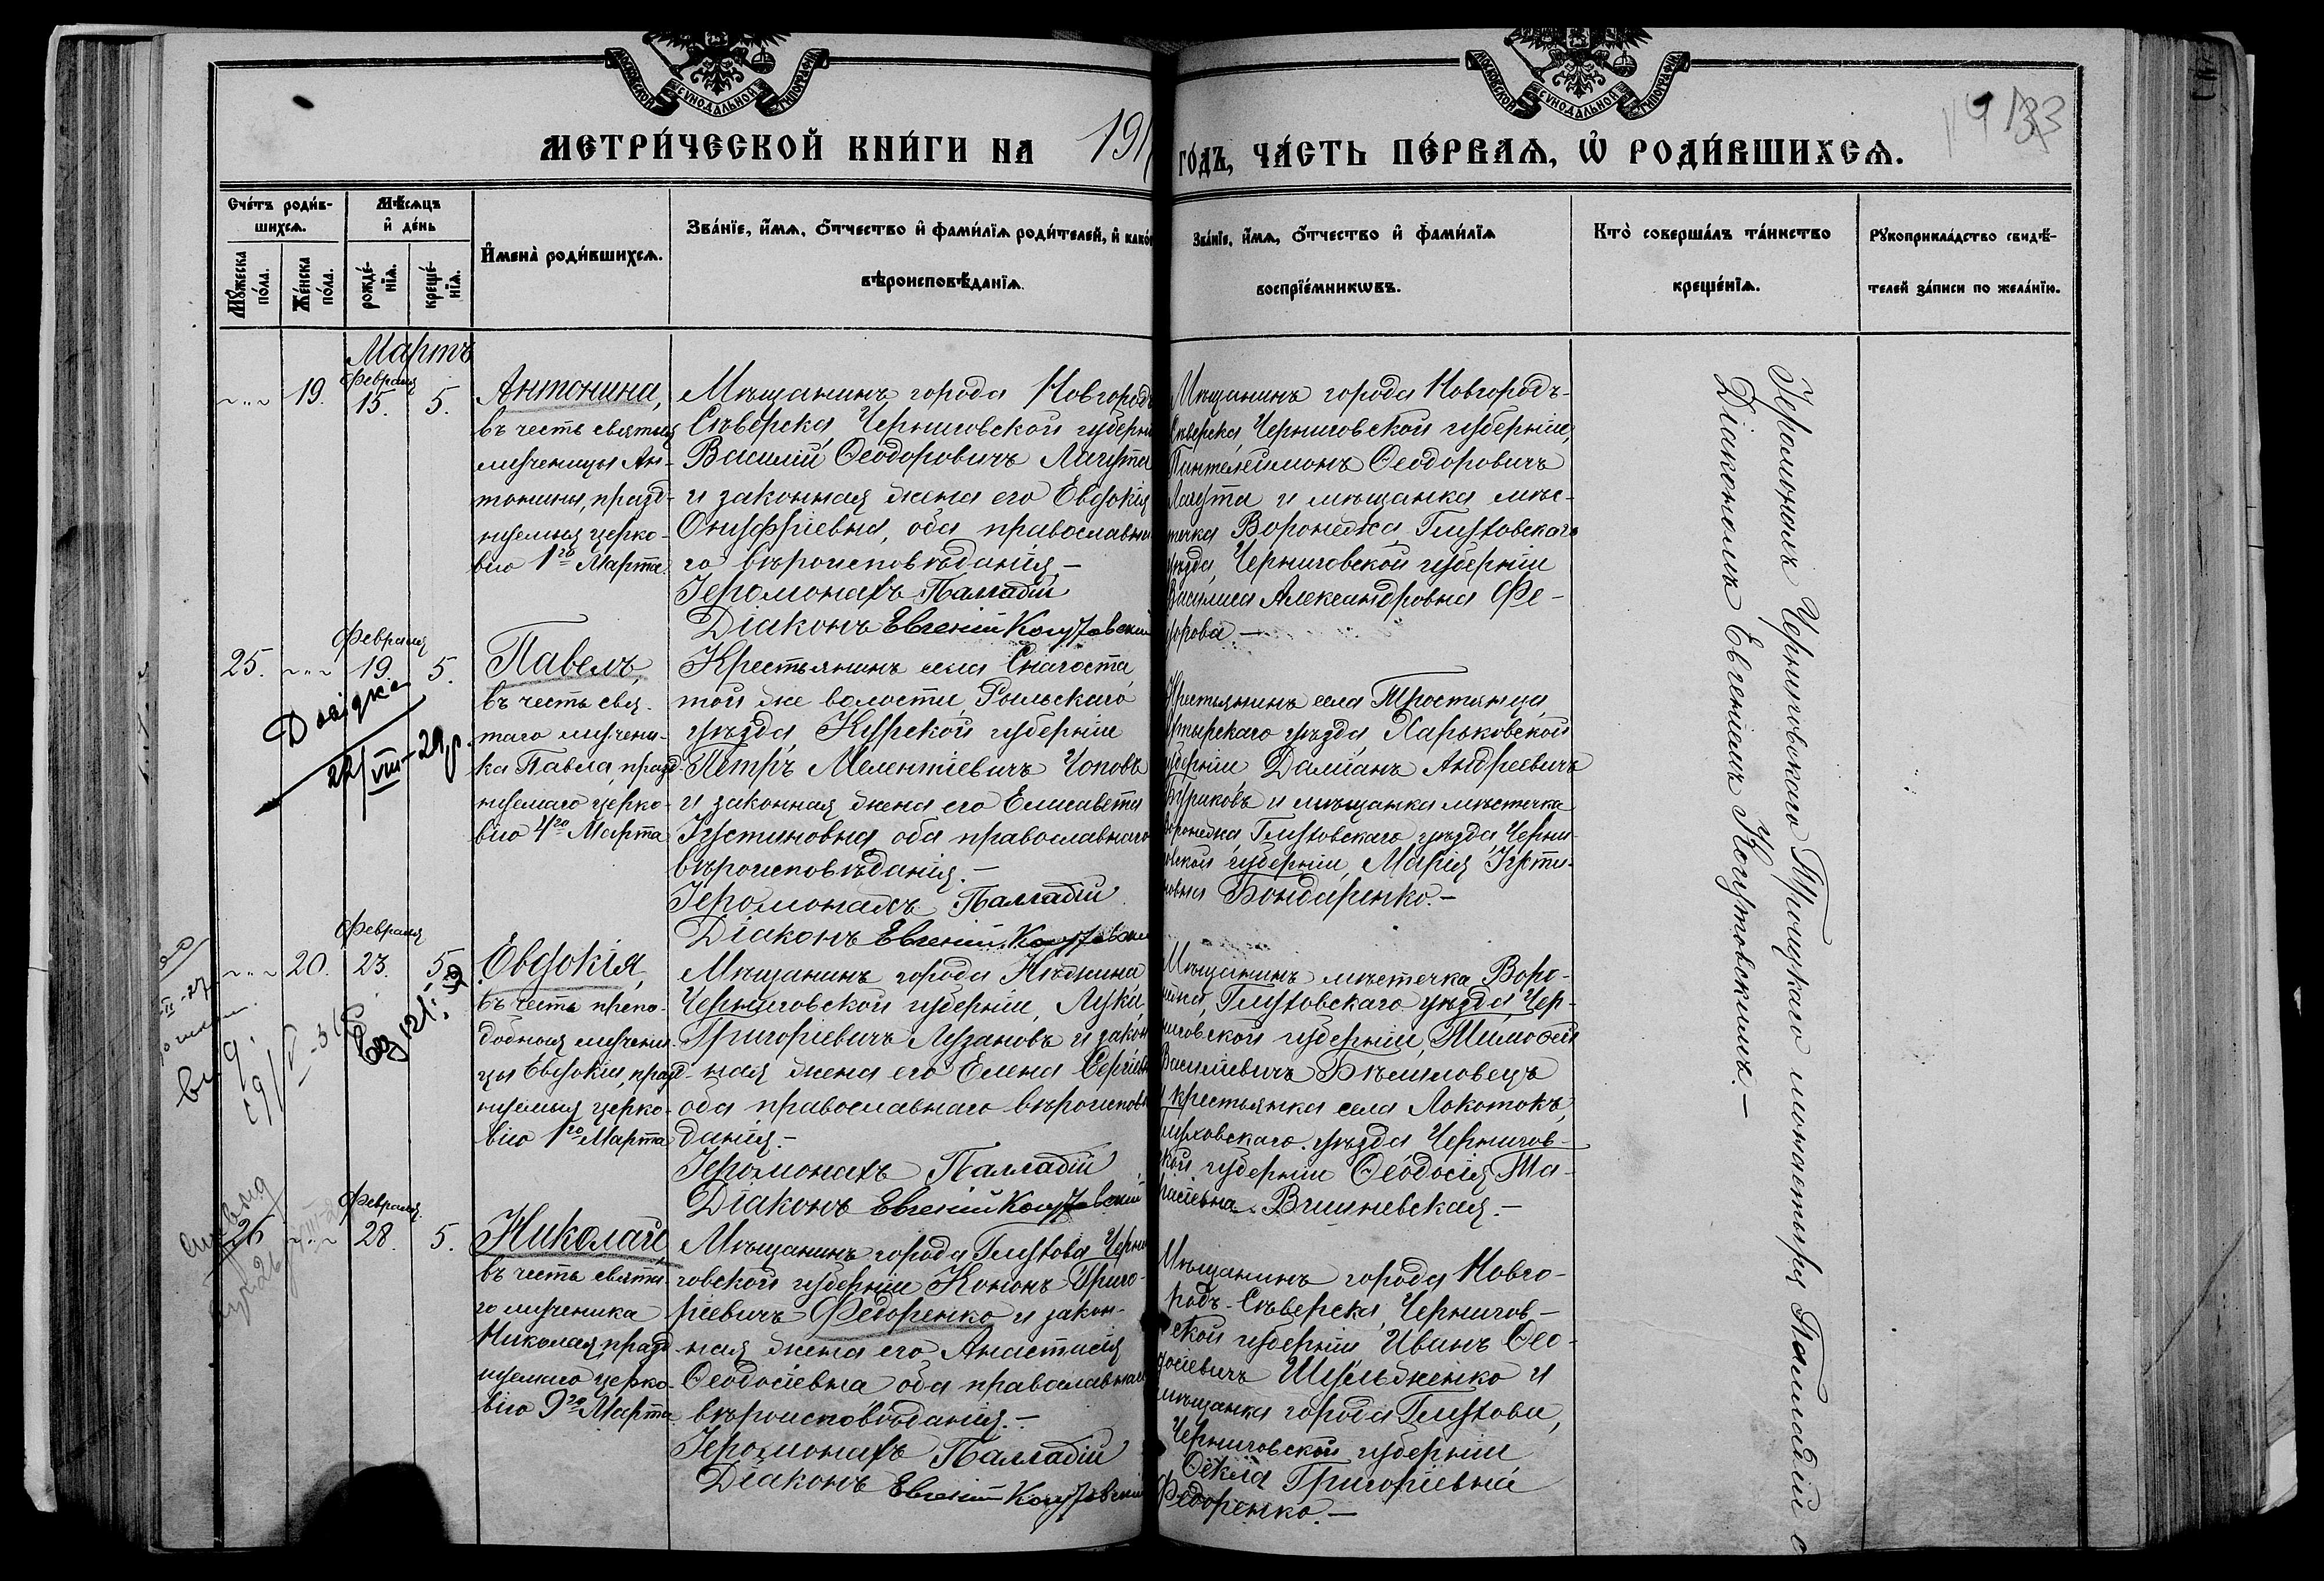 МОСКОВСКОЙ СѴНОДАЛЬНОЙ ТИПОГРАФІИ
МОСКОВСКОЙ СѴНОДАЛЬНОЙ ТИПОГРАФІИ
МЕТРИ́ЧЕСКОЙ КНИ́ГИ НА 191
ГО́ДЪ, ЧА́СТЬ ПЕ́РВАѦ, Ѽ РОДИ́ВШИХСѦ.
Сче́тъ роди́в-
шихсѧ.
Мѣ́сѧцъ
и҆ де́нь
Мꙋ́жеска
по́ла.
Же́нска
по́ла.
рожде́-
нїѧ.
креще́-
нїѧ.
И҆мена̀ роди́вшихсѧ.
Зва́нїе, и҆́мѧ, ѻ҆́тчество и҆ фами́лїѧ роди́телей, и҆ како́
вѣроисповѣ́данїѧ.
Зва́нїе, и҆́мѧ, ѻ҆́тчество и҆ фами́лїѧ
воспрїе́мникѡвъ.
Кто̀ соверша́лъ та́инство
креще́нїѧ.
Рꙋкоприкла́дство свидѣ́-
телей за́писи по жела́нїю.
Мартъ
19.
Февраля
15.
5.
Антонина,
въ честь святыя
мученицы Ан-
тонины, празд-
нуемыя церко-
вію 1го Марта.
Мѣщанинъ города Новгородъ
Сѣверска, Черниговской губерніи
Василій Ѳеодоровичъ Лагута
и законная жена его Евдокія
Онуфріевна, оба православна
го вѣроисповѣданія.-
Іеромонахъ Палладій
Діаконъ Евгеній Коцутовскій
Мѣщанинъ города Новгородъ-
Сѣверска, Черниговской губерніи,
Пантелеимонъ Ѳеодоровичъ
Лагута и мѣщанка мѣс-
течка Воронежа, Глуховскаго
уѣзда, Черниговской губерніи
Василиса Александровна Фе-
дорова.-
25.
Февраля
19.
5.
Довідка
22/VIII-29р.
Павелъ,
въ честь свя-
таго мучени-
ка Павла, празд-
нуемаго церко-
вію 4го Марта
Крестьянинъ села Снагоста,
той же волости, Рыльскаго
уѣзда, Курской губерніи
Петръ Мелентіевичъ Чоповъ
и законная жена его Елисавета
Іустиновна, оба православнаго
вѣроисповѣданія.-
Іеромонахъ Палладій
Діаконъ Евгеній Коцутовскій
Крестьянинъ села Тростянца,
Ахтырскаго уѣзда, Харьковской
губерніи Даміанъ Андреевичъ
и мѣщанка мѣстечка
Воронежа, Глуховскаго уѣзда, Черни-
говской губерніи, Марія Іусти-
новна Бондаренко.-
20.
Февраля
23.
5.
Евдокія,
въ честь препо-
добныя мучени-
цы Евдокіи, празд-
нуемыя церко-
вію 1го Марта
Мѣщанинъ города Нѣжина
Черниговской губерніи, Лука
Григоріевичъ Лузановъ и закон-
ная жена его Елена Сергіевна
оба православнаго вѣроисповѣ
данія.-
Іеромонахъ Палладій
Діаконъ Евгеній Коцутовскій
Мѣщанинъ мѣстечка Воро-
нежа, Глуховскаго уѣзда Чер-
ниговской губерніи, Тимоѳей
Василіевичъ Бѣлиловецъ
и крестьянка села Локотокъ,
Глуховскаго уѣзда Чернигов-
ской губерніи Ѳеодосія Та-
расіевна Вишневская.-
26
Февраля
28.
5.
Николай,
въ честь свята-
го мученика
Николая, празд-
нуемаго церко-
вію 9го Марта
Мѣщанинъ города Глухова, Черни
говской губерніи Кононъ Григо-
ріевичъ Федоренко и закон-
ная жена его Анастасія
Ѳеодосіевна оба православнаго
вѣроисповѣданія.-
Іеромонахъ Палладій
Діаконъ Евгеній Коцутовскій
Мѣщанинъ города Новго-
родъ-Сѣверска, Чернигов-
ской губерніи Иванъ Ѳео-
досіевичъ Шульженко и
мѣщанка города Глухова,
Черниговской губерніи
Ѳекла Григоріевна
Федоренко.-
Іеромонахъ Черниговского Троицкаго монастыря Палладій с
Діакономъ Евгеніемъ Коцутовскимъ.-